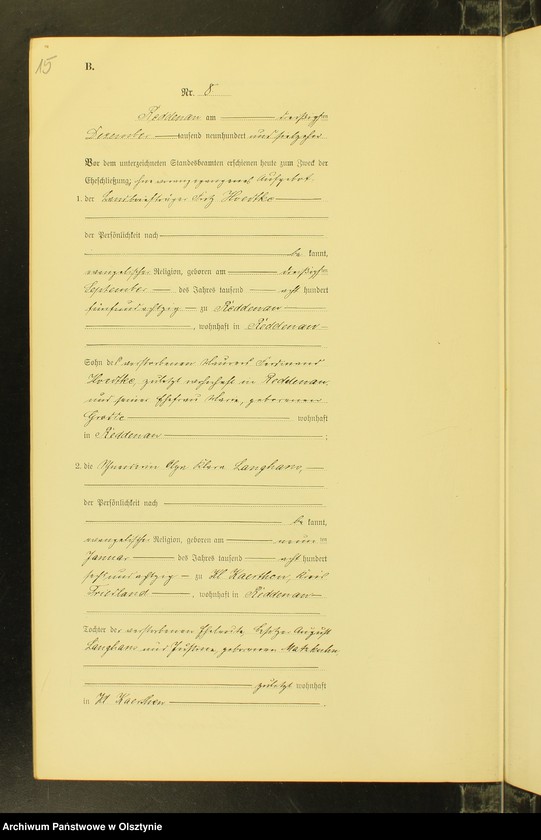 15
B.
Nr. 8
Reddenau am dreißigsten
Dezember tausend neunhundert und
Vor dem unterzeichneten Standesbeamten erschienen heute zum Zweck der
Eheschließung, Aufgebot
1. der Landbriefträger Fritz Hoedtke
der Persönlichkeit nach
be kannt,
evangelischer Religion, geboren am dreißigsten
September des Jahres tausend acht hundert
fünfundachtzig zu Reddenau
, wohnhaft in Reddenau
Sohn des verstorbenen Maurers Ferdinand
Hoedtke, zuletzt wohnhaft in Reddenau
und seiner Ehefrau, geborenen
wohnhaft
in Reddenau .
2. die Olga Klara Langhans,
der Persönlichkeit nach
be kannt,
evangelischer Religion, geboren am neunten
Januar des Jahres tausend acht hundert
sechsundachtzig zu Kl Kaerthen, Kreis
Friedland , wohnhaft in Reddenau
Tochter der verstorbenen Eheleute, Besitzer August
Langhans und Justine, geborenen
zuletzt wohnhaft
in Kl Kaerthen .
Archiwum Państwowe w Olsztynie